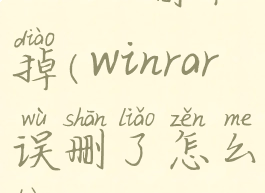 diào
掉(winrar
wù shān liǎo zěn me
误删了怎么